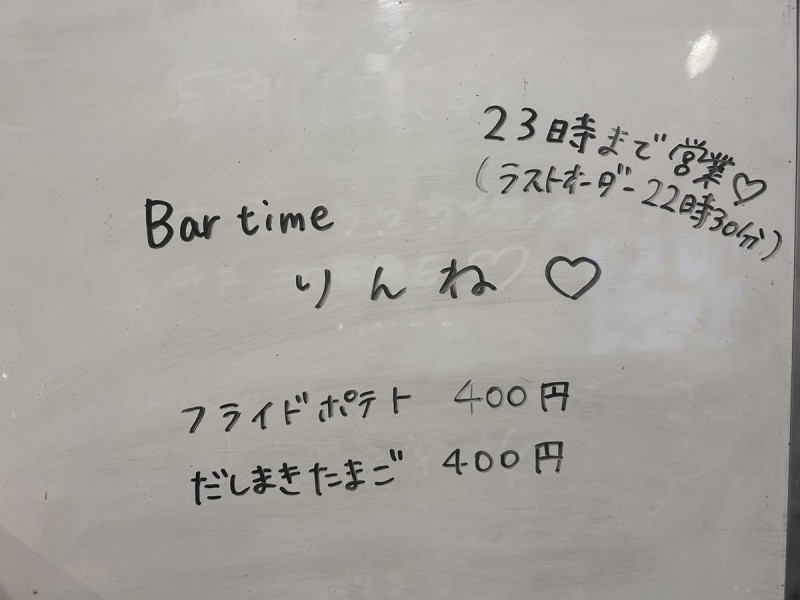 23時まで営業♡
(ラストオーダー22時30分)
Bar time
りんね ♡
フライドポテト 400円
だしまきたまご 400円